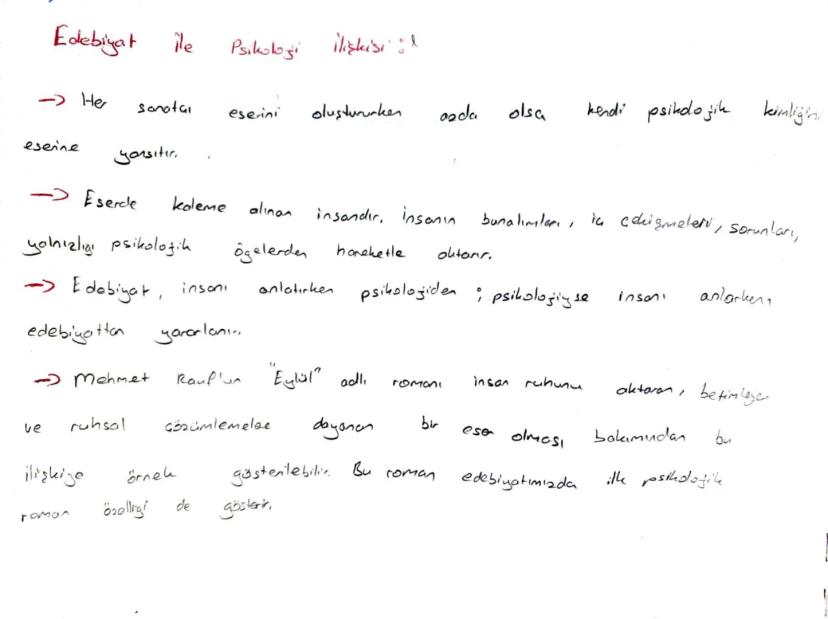 Edebiyat ile Psikoloji İlişkisi :
→ Her sanatçı eserini oluştururken azda olsa kendi psikolojik kimliğini
eserine yansıtır.
→ Eserde kaleme alınan insandır. İnsanın bunalımları, iç çekişmeleri, sorunları,
yalnızlığı psikolojik ögelerden hareketle aktarır.
→ Edebiyat, insanı anlatırken psikolojiden ; psikolojiyse insanı anlarken
edebiyattan yararlanır.
→ Mehmet Rauf'un "Eylül" adlı romanı insan ruhunu aktaran, betimleyen
ve ruhsal çözümlemelere dayanan bir eser olması bakımından bu
ilişkiye örnek gösterilebilir. Bu roman edebiyatımızda ilk psikolojik
roman özelliği de gösterir.